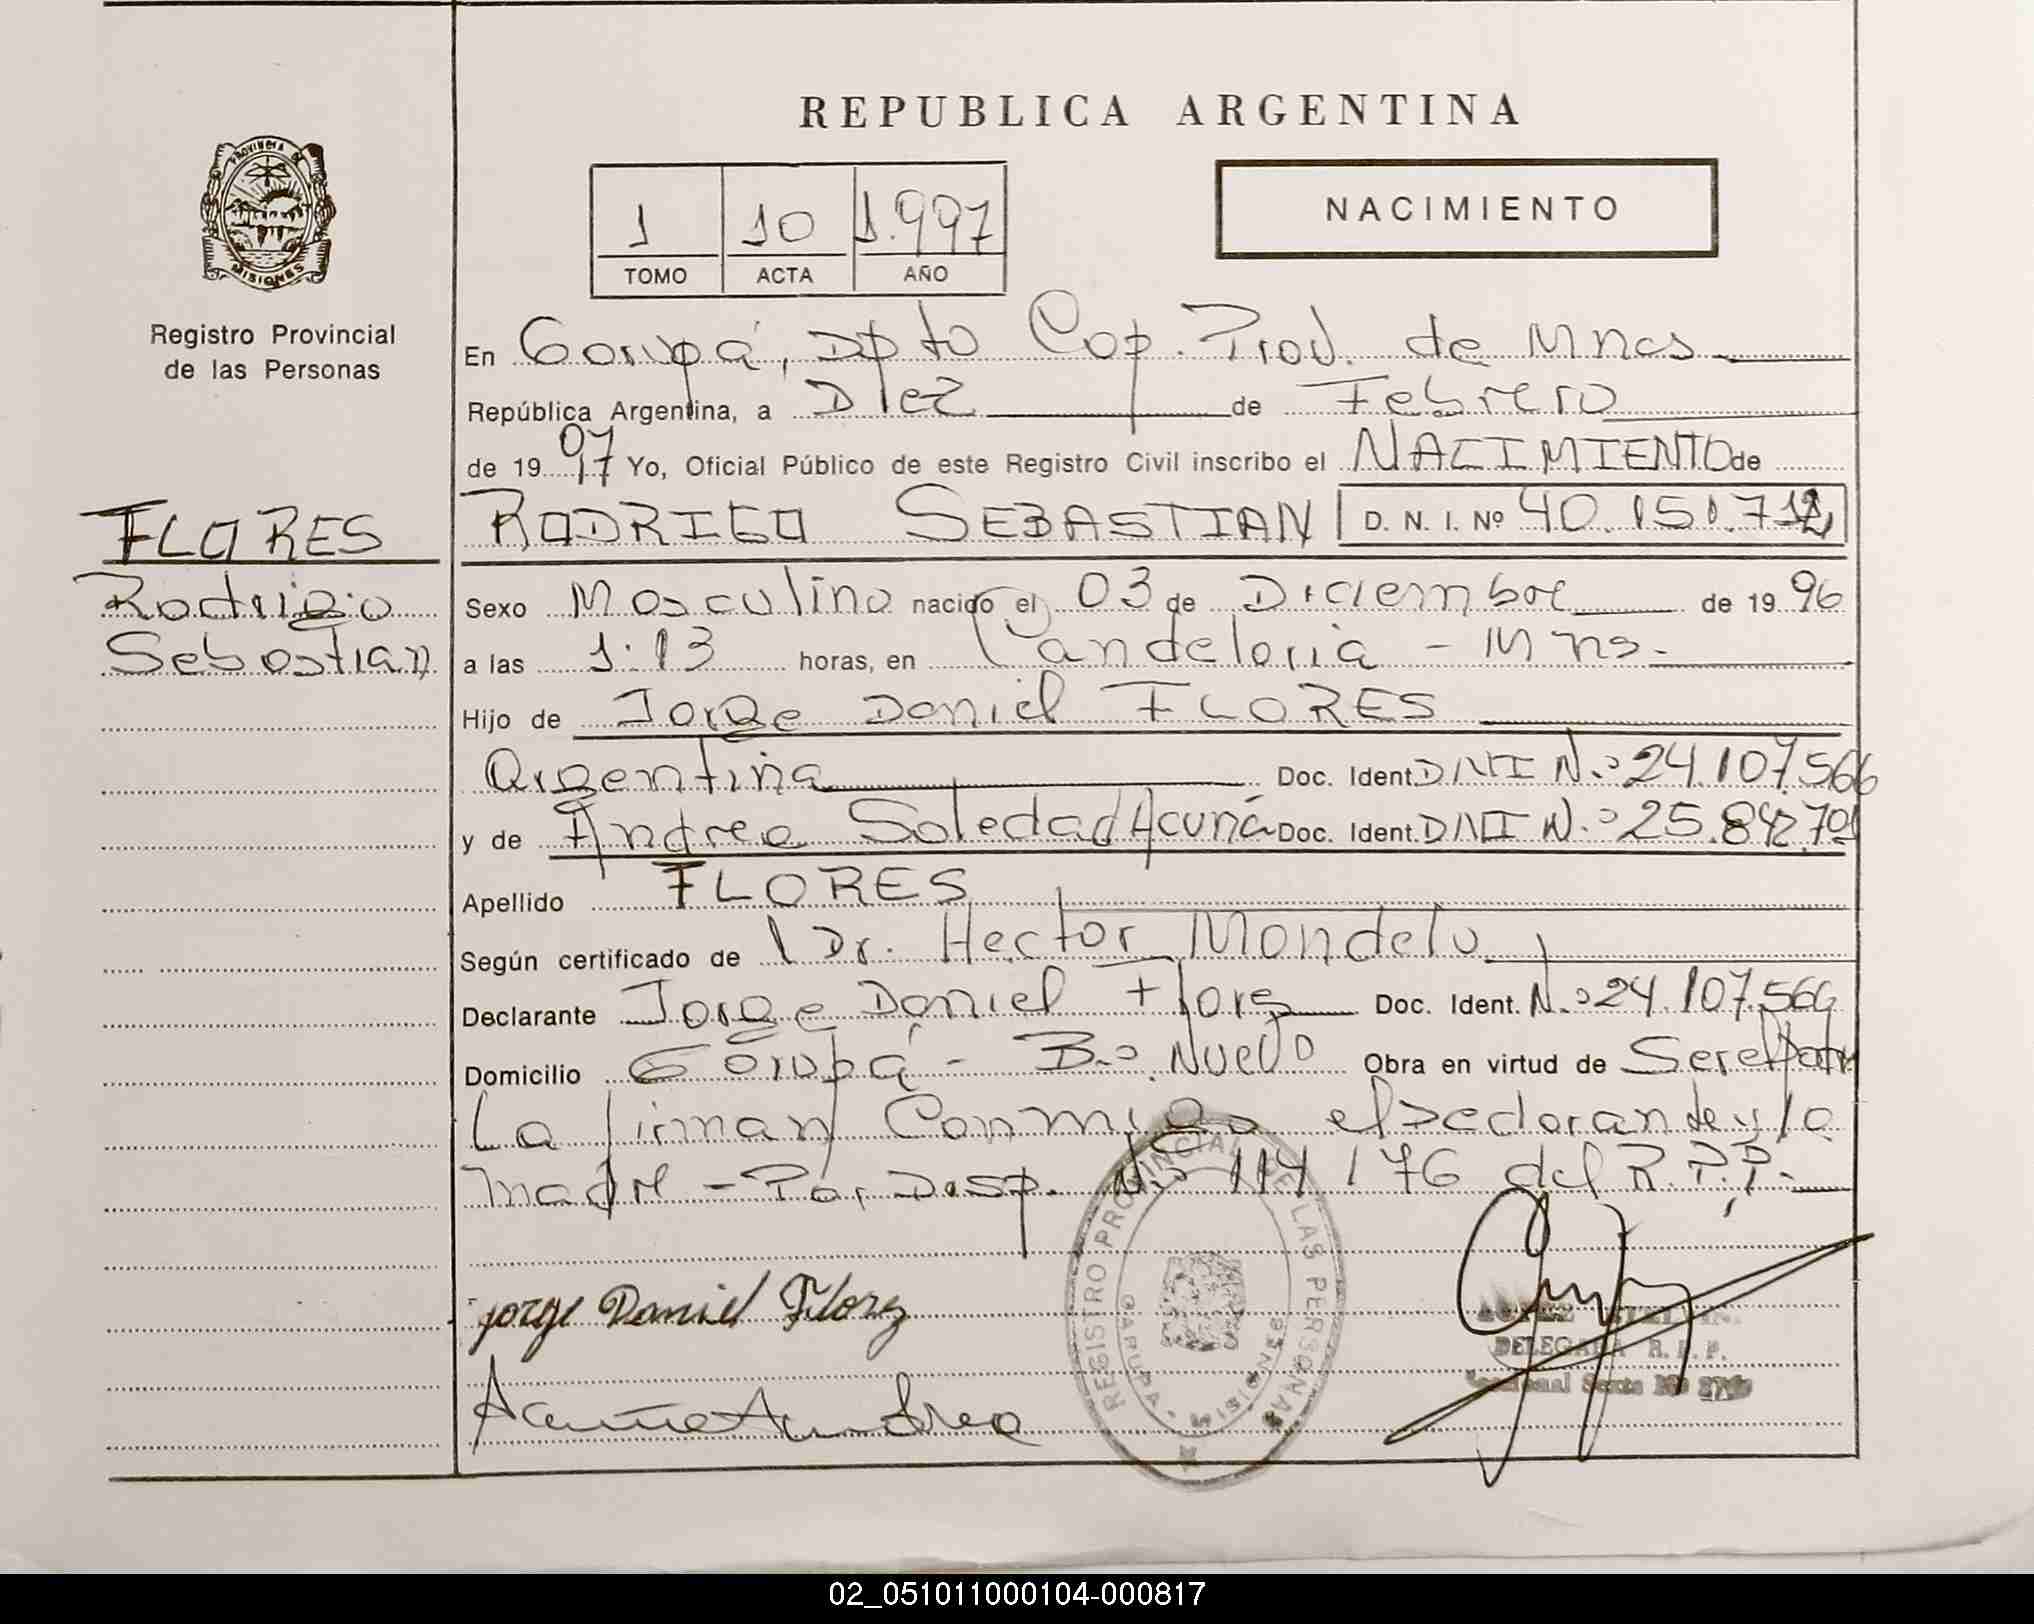 REPUBLICA ARGENTINA
PROVINCIA DE
MISIONES
Registro Provincial
de las Personas
1 10 1.997
TOMO ACTA AÑO
NACIMIENTO
En Garupá, Dpto Cap. Prov. de Mnes
República Argentina, a Diez de Febrero
de 19 97 Yo, Oficial Público de este Registro Civil inscribo el NACIMIENTO de
FLORES
Rodrigo
Sebastian
RODRIGO SEBASTIAN D. N. I. Nº 40.151.712
Sexo Masculino nacido el 03 de Diciembre de 19 96
a las 1:13 horas, en Candelaria - Mns.
Hijo de Jorge Daniel FLORES
Argentina Doc. Ident. DNI N.º 24.107.566
y de Andrea Soledad Acuña Doc. Ident. DNI N.º 25.842.70
Apellido FLORES
Según certificado de Dr. Hector Mondelo
Declarante Jorge Daniel Flores Doc. Ident. N.º 24.107.566
Domicilio Garupá - B.º Nuevo Obra en virtud de
La firman Conmigo el declarante y la
madre - Por Disp. Nº 114/76 del R.P.P.-
REGISTRO PROVINCIAL DE LAS PERSONAS
GARUPA - MISIONES
DELEGADA R. P. P.
Jorge Daniel Florez
Acuña Andrea
02_051011000104-000817